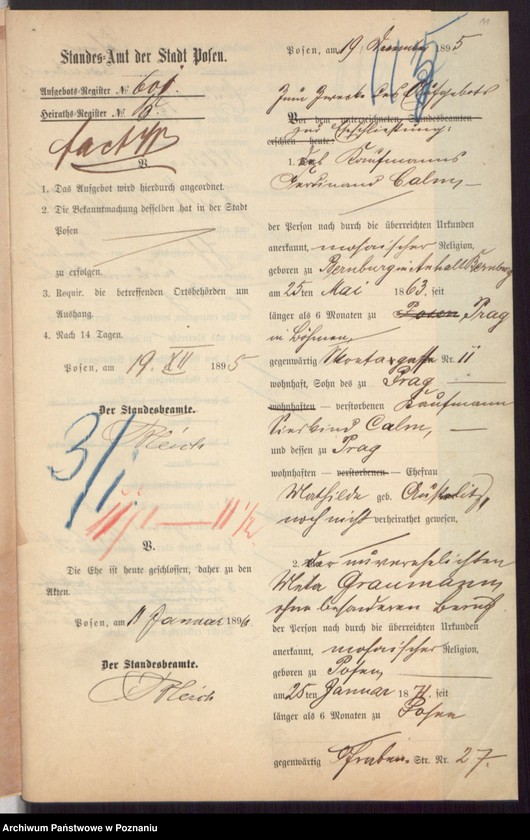 Standes-Amt der Stadt Posen.
Aufgebots-Register № 601.
Heiraths-Register № 6.
V.
1. Das Aufgebot wird hierdurch angeordnet.
2. Die Bekanntmachung desselben hat in der Stadt
Posen
zu erfolgen.
3. Requir. die betreffenden Ortsbehörden um
Aushang.
4. Nach 14 Tagen.
Posen, am 19. XII 1895
Der Standesbeamte.
3/1.
11 1/2
V.
Die Ehe ist heute geschlossen, daher zu den
Akten.
Posen, am 11 Januar 1896.
Der Standesbeamte.
11
Posen, am 19 Dezember 1895
Zum Zwecke des Aufgebots
Vor dem unterzeichneten Standesbeamten
zur Eheschließung:
erschien heute:
1. Des Kaufmanns
Ferdinand Calm,
der Person nach durch die überreichten Urkunden
anerkannt, mosaischer Religion,
geboren zu Bernburg in Anhalt Bernburg
am 25ten Mai 1863, seit
länger als 6 Monaten zu Posen Prag
in Böhmen
gegenwärtig Nr. II
wohnhaft, Sohn des zu Prag
wohnhaften — verstorbenen Kaufmann
Calm,
und dessen zu Prag
wohnhaften — verstorbenen — Ehefrau
Mathilde geb. Austerlitz,
noch nicht verheirathet gewesen,
2. Der unverehelichten
Meta Graumann,
ohne besonderen Beruf
der Person nach durch die überreichten Urkunden
anerkannt, mosaischer Religion,
geboren zu Posen
am 25ten Januar 1871. seit
länger als 6 Monaten zu Posen
gegenwärtig Str. Nr. 27.
Archiwum Państwowe w Poznaniu